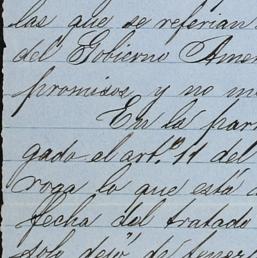 las que se referian
del Gobierno Amer
promisos, y no m
En la par
gado el art.º 11 del
roga lo que está
fecha del tratado
solo dejó de tener